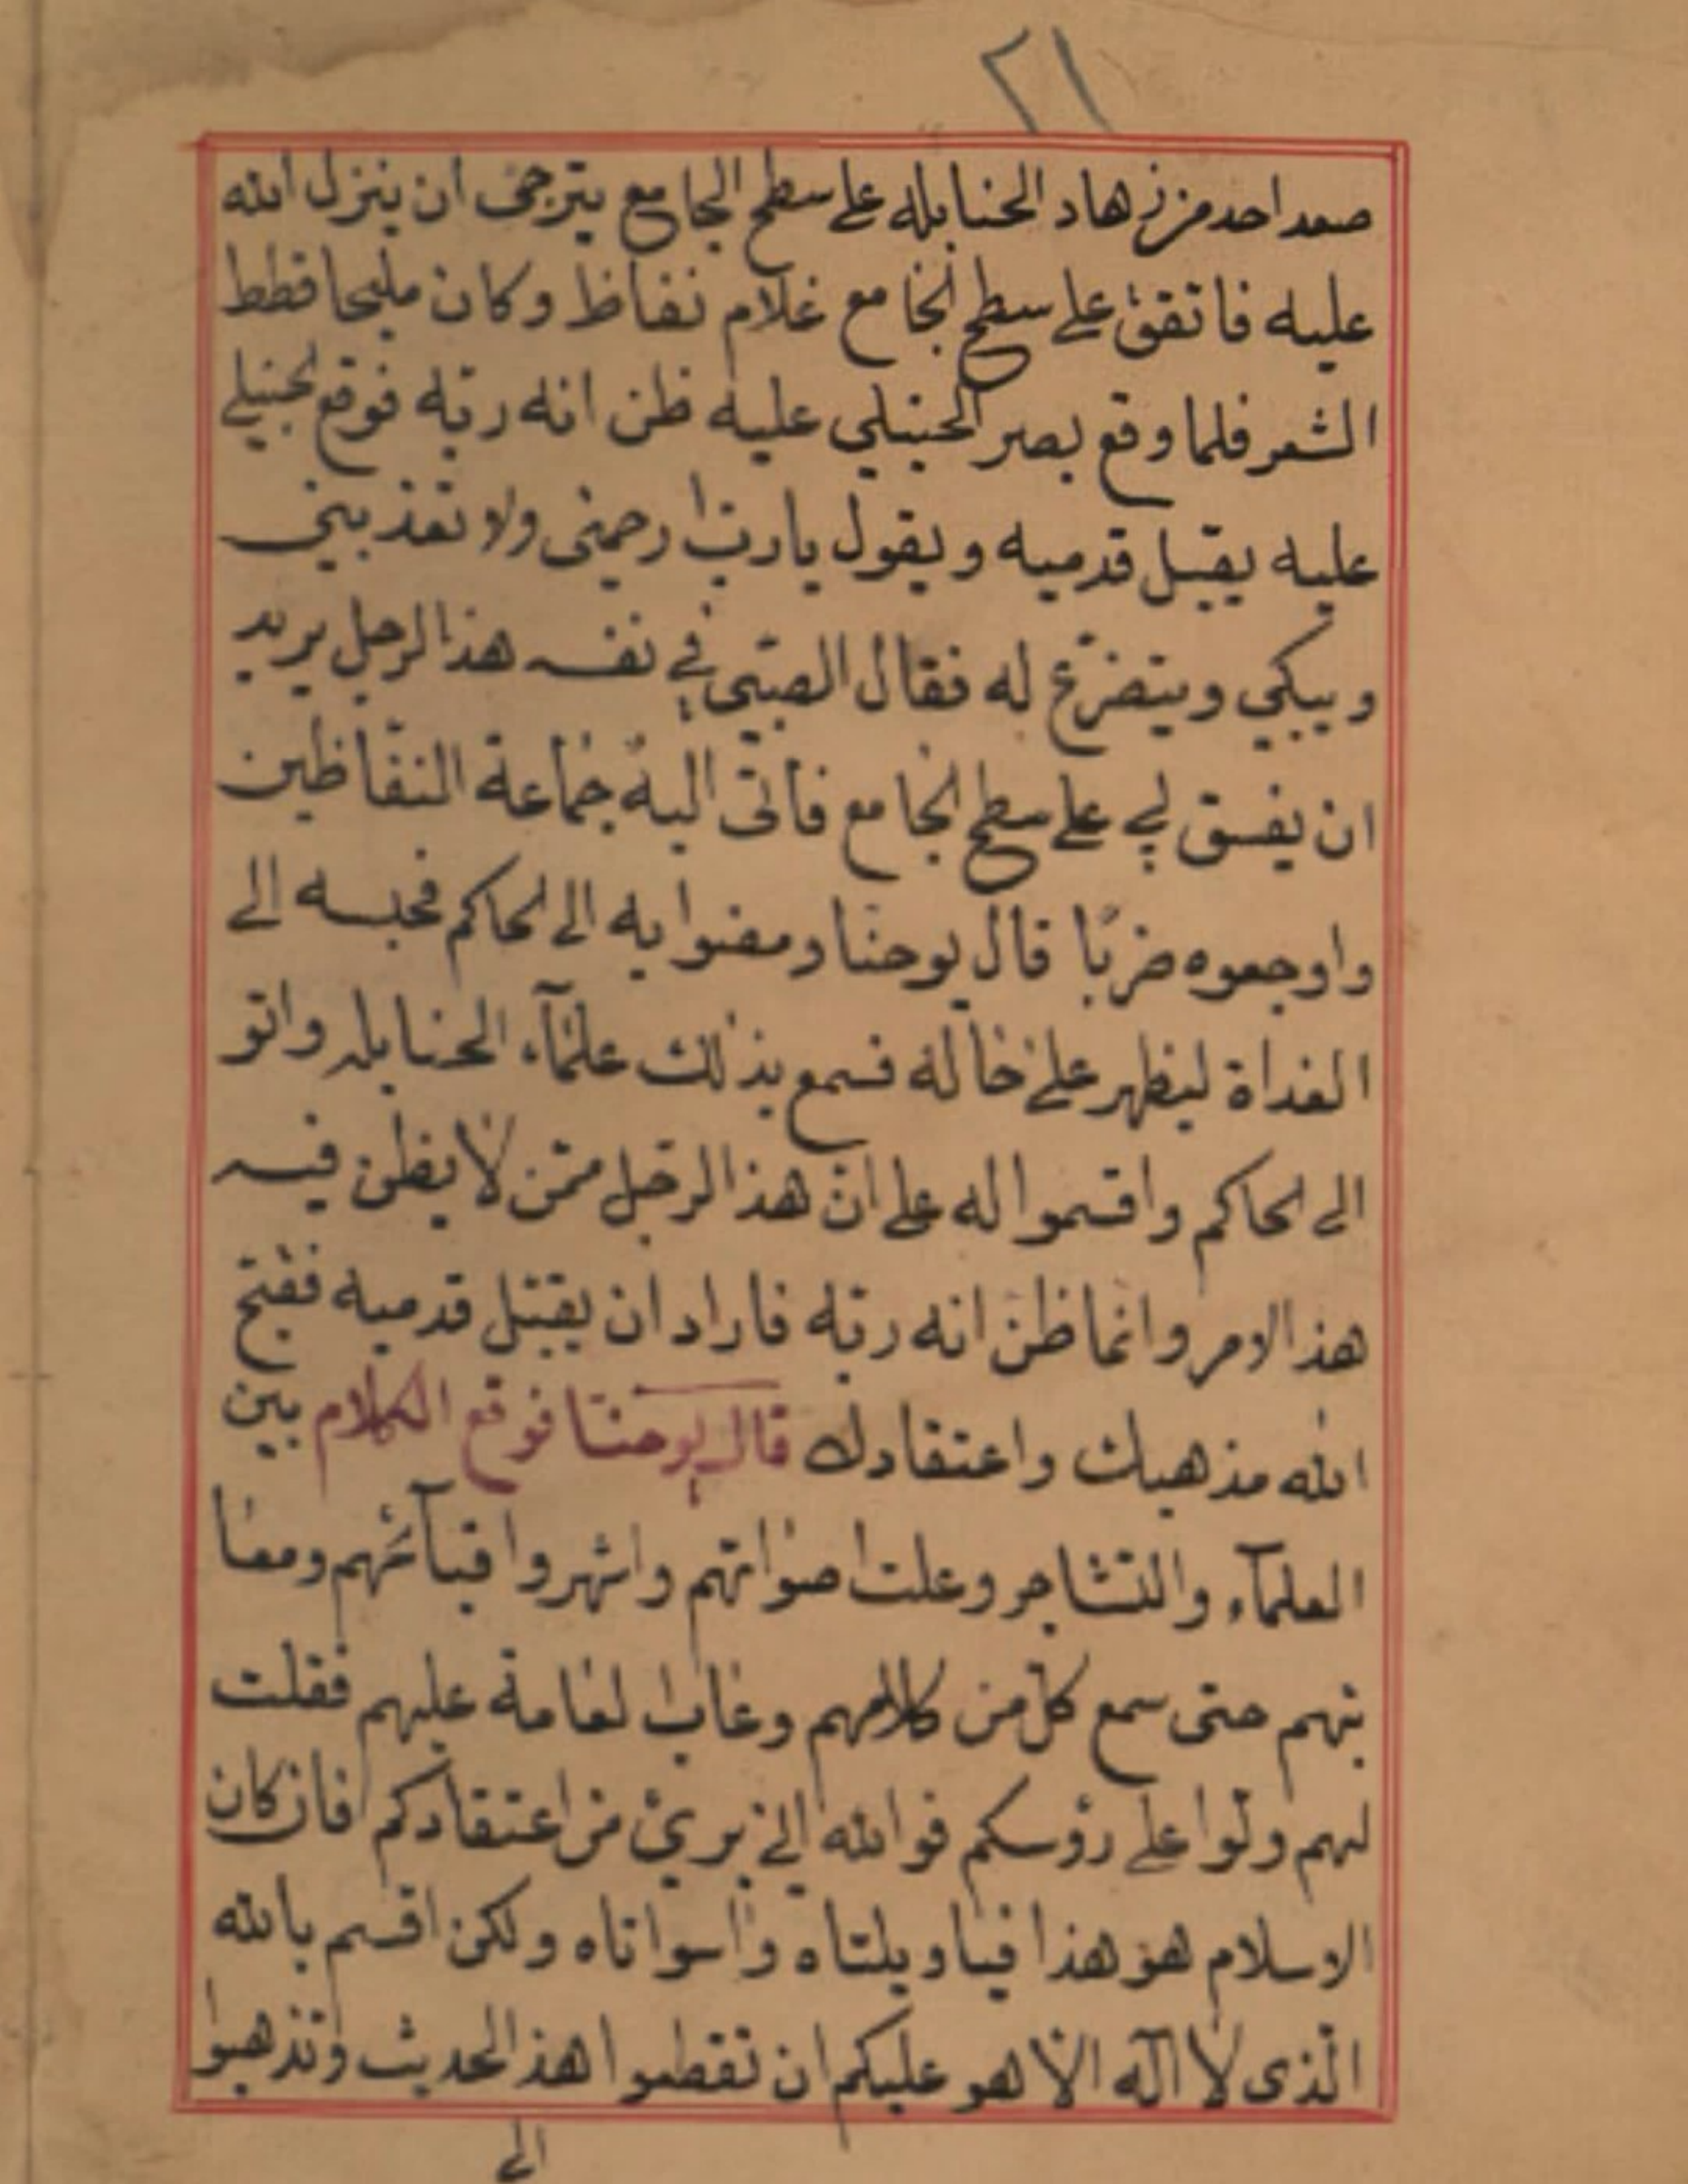 ٢١
صعد احد من زهاد الحنابله على سطح الجامع يترجى ان ينزل الله
عليه فاتفق على سطح الجامع غلام نفاظ وكان مليحا قطط
الشعر فلما وقع بصر الحنبلي عليه ظن انه ربّه فوقع لحنبلي
عليه يقبّل قدميه ويقول يا ربّ ارحمنى ولا تعذبنى
ويبكي ويتضرّع له فقال الصبّى في نفسه هذا الرجل يريد
ان يفسق لي على سطح الجامع فاتى اليه جماعة النفّاظين
واوجعوه ضربًا قال يوحنا ومضوا به الى الحاكم فحبسه الى
الغداة ليظهر على حاله فسمع بذلك علمآء الحنابله واتو
الى الحاكم واقسموا له على انّ هذا الرجل ممّن لا يظن فيه
هذا الامر وانما ظنّ انه ربّه فاراد ان يقبّل قدميه فقبّح
الله مذهبك واعتقادك قال يوحنّا فوقع الكلام بين
العلمآء والتشاجر وعلت اصواتهم واشهروا قبآئحهم ومعا
بتهم حتى سمع كلّ من كلامهم وعاب العامة عليهم فقلت
لهم ولّوا على رؤسكم فوالله انى برئ من اعتقادكم فان كان
الاسلام هو هذا فيا ويلتاه واسواتاه ولكن اقسم بالله
الّذى لا اله الّا هو عليكم ان تقطعوا هذا الحديث وتذهبوا
الى